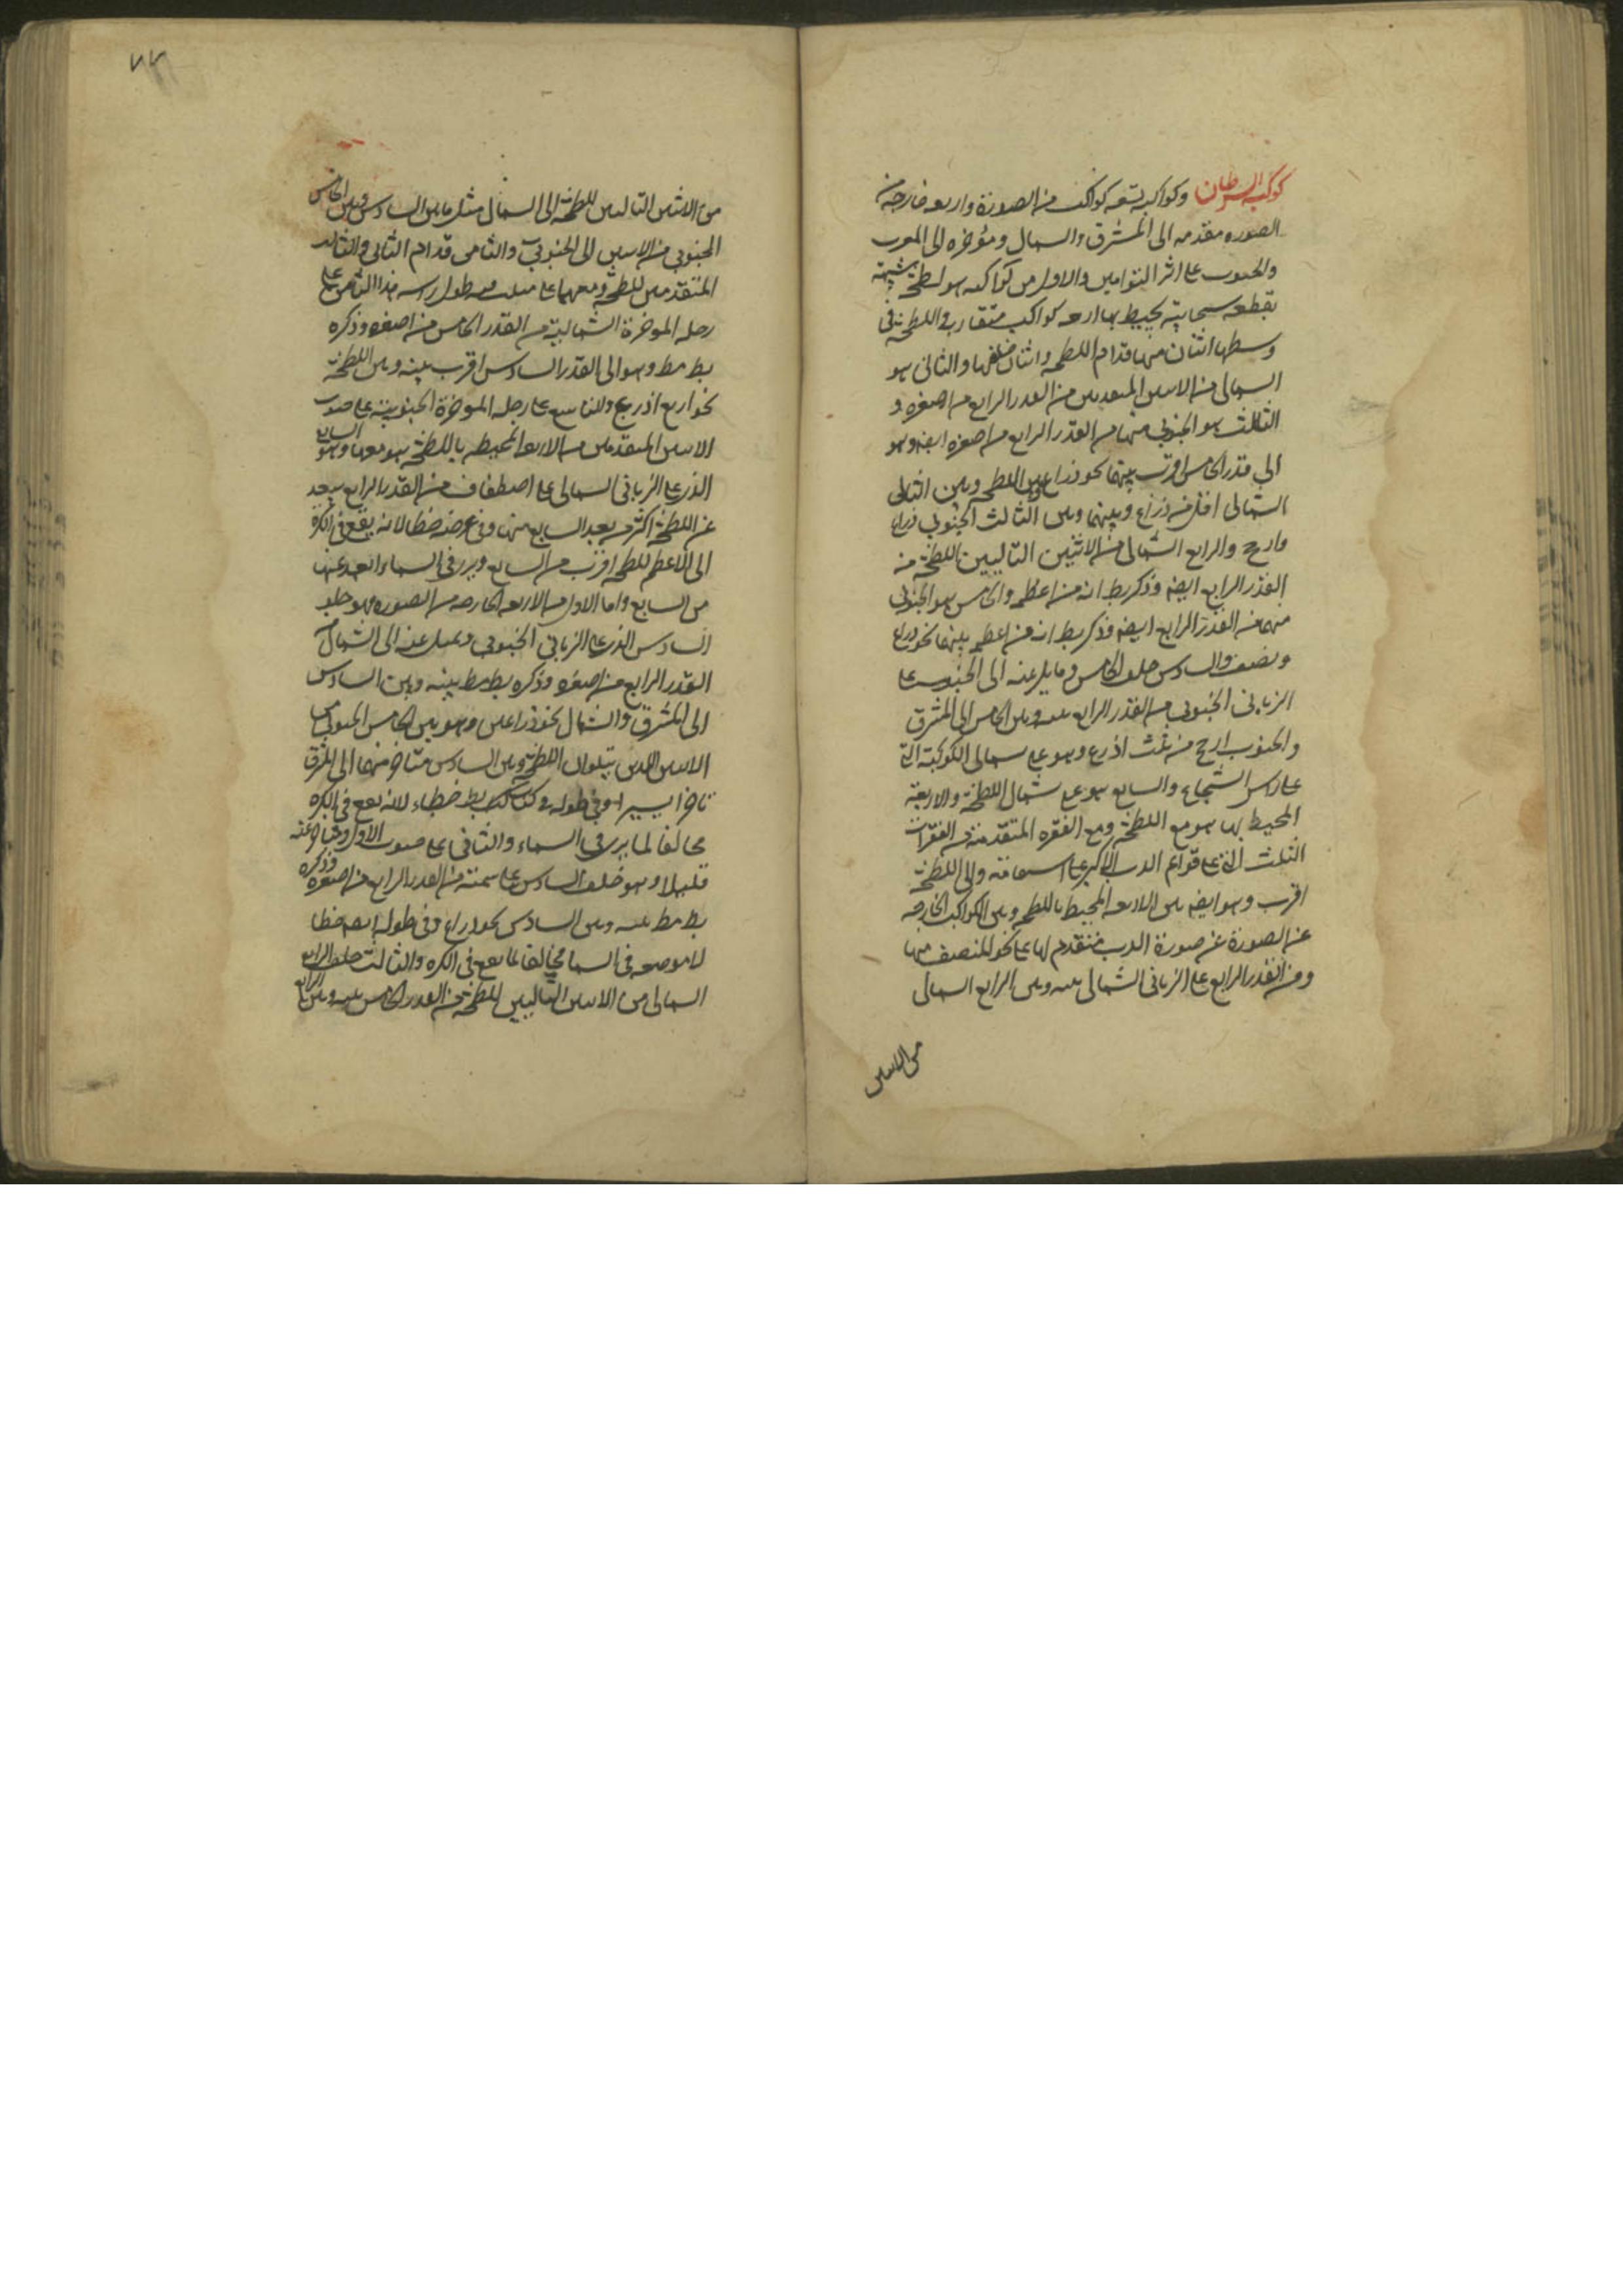 كوكبة السرطان وكواكبه تسعه كواكب من الصورة واربعه خارجه من
الصوره مقدمه الى المشرق والسمال ومؤخره الى المعرب
والحنوب على اثر التوامين والاول من كواكبه هو لطخه شبيهة
بقطعه سحابية يحيط بها اربعه كواكب متقاربه واللطخة فى
وسطها اثنان منها قدام اللطخه واثنان خلفها والثانى هو
السمالى من الاسين المتقدمين من القدر الرابع من اصغره و
الثالث هو الجنوبى منهما من القدر الرابع من اصغره ايضه وهو
الى قدر الخامس اقرب بينهما نحو ذراع وبين اللطخه وبين الثانى
الشمالى اقل من ذراع وبينها وبين الثالث الجنوبى ذراع
وارجح والرابع الشمالى من الاثنين التاليين للطخة من
القدر الرابع ايضه وذكر بط انه من اعظمه والخامس هو الجنوبى
منهما من القدر الرابع ايضه وذكر بط انه من اعظمه بينهما نحو ذراع
ونصف والسادس خلف الخامس ومايل عنه الى الجنوب على
الزبانى الجنوبى من القدر الرابع بينه وبين الخامس الى المشرق
والجنوب ارجح من ثلث اذرع وهو على سمالى الكوكبة التى
على راس الشجاع والسابع هو على شمال اللطخة والاربعة
المحيط بها هو مع اللطخة ومع الفقره المتقدمة من الفقرات
الثلث التى على قوائم الدب الاكبر على استقامة والى اللطخة
اقرب وهو ايضه بين الاربعه المحيط باللطخه وبين الكواكب الخارجه
عن الصورة عن صورة الدب متقدم لها على نحو المنصف منها
ومن القدر الرابع على الزبانى الشمالى بينه وبين الرابع السمالى
من الاسين
من الاثنين التاليين للطخة الى السمال مثل ما بين السادس وبين الخامس
الجنوبى من الاسين الى الجنوب والثامن قدام الثانى والثالث
المتقدمين للطخة ومعهما على مثلث فيه طول راسه هذا الثامن على
رجله الموخرة الشمالية من القدر الخامس من اصغره وذكره
بط مط وهو الى القدر السادس اقرب بينه وبين اللطخة
نحو اربع اذرع والتاسع على رجله الموخرة الجنوبية على صوب
الاسين المتقدمين من الاربعة المحيطه باللطخه هو معهما وهو السابع
الذى على الزبانى السمالى على اصطفاف من القدر الرابع يبعد
عن اللطخة اكثر من بعد السابع منها وفى عرضه خطا لانه يقع فى الكرة
الى الاعظم للطخه اقرب من السابع ويرى فى السماء ابعد عنها
من السابع واما الاول من الاربعه الخارجه من الصوره فهو خلف
السادس الذى على الزبانى الجنوبى ويميل عنه الى الشمال من
القدر الرابع من اصغره وذكره بط مط بينه وبين السادس
الى المشرق والشمال نحو ذراعين وهو بين الخامس الجنوبى من
الاسين اللذين يتلوان اللطخة وبين السادس متاخر منهما الى المشرق
تاخرا يسيرا وفى طوله فى كتاب بط خطاء لانه يقع فى الكره
مخالفا لما يرى فى السماء والثانى على صوب الاول ومتاخر عنه
قليلا وهو خلف السادس على سمته من القدر الرابع من اصغره وذكره
بط مط بينه وبين السادس نحو ذراع وفى طوله ايضه خطا
لانه موضعه فى السما مخالف لما يقع فى الكره والثالث خلف الرابع
السمالى من الاسين التاليين للطخة من القدر الخامس بينه وبين الرابع